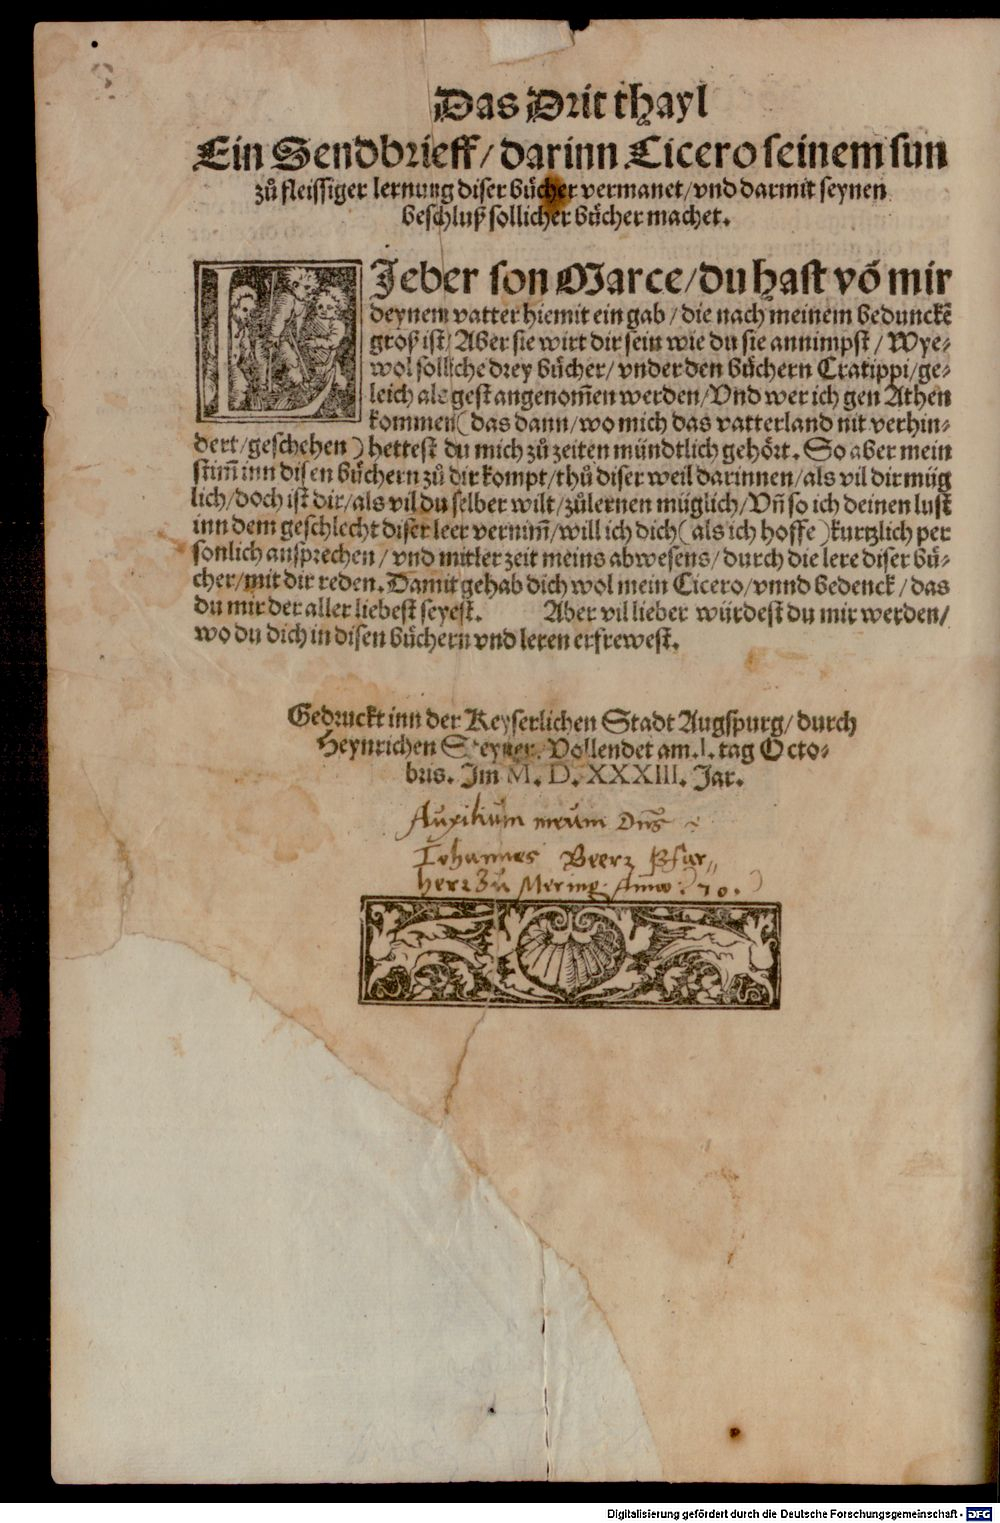 Das Drit thayl
Ein Sendbrieff/ darinn Cicero seinem sun
zů fleissiger lernung diser bücher vermanet/ vnd darmit seynen
beschluß sollicher bücher machet.
LJeber son Marce/ du hast võ mir
deynem vatter hiemit ein gab/ die nach meinem bedunckẽ
groß ist/ Aber sie wirt dir sein wie du sie annimpst/ Wye-
wol solliche drey bücher/ vnder den büchern Cratippi/ ge-
leich als gest angenom̃en werden/ Vnd wer ich gen Athen
kommen (das dann/ wo mich das vatterland nit verhin-
dert/ geschehen) hettest du mich zů zeiten mündtlich gehört. So aber mein
stim̃ inn disen büchern zů dir kompt/ thů diser weil darinnen/ als vil dir müg
lich/ doch ist dir/ als vil du selber wilt/ zůlernen müglich/ Vñ so ich deinen lust
inn dem geschlecht diser leer vernim̃/ will ich dich (als ich hoffe) kurtzlich per
sonlich ansprechen/ vnd mitler zeit meins abwesens/ durch die lere diser bü-
cher/ mit dir reden. Damit gehab dich wol mein Cicero/ vnnd bedenck/ das
du mir der aller liebest seyest. Aber vil lieber würdest du mir werden/
wo du dich in disen büchern vnd leren erfrewest.
Gedruckt inn der Keyserlichen Stadt Augspurg/ durch
Heynrichen Steyner. Vollendet am .j. tag Octo-
bris. Im M. D. XXXIII. Jar.
Auxilium meum Dñs
Iohannes Beerz Pfar,,
herr zů Mering. Anno 70.
Digitalisierung gefördert durch die Deutsche Forschungsgemeinschaft - DFG